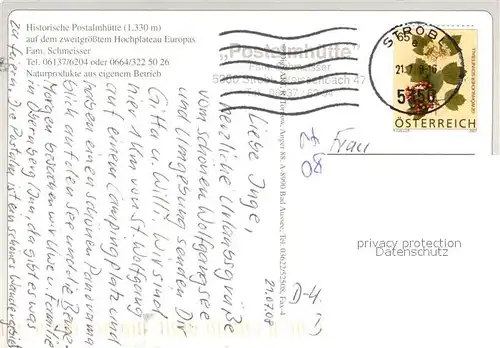 Historische Postalmhütte (1.330 m)
auf dem zweitgrößtem Hochplateau Europas
Fam. Schmeisser
Tel. 06137/6204 oder 0664/322 50 26
Naturprodukte aus eigenem Betrieb
„Postalmhütte"
STROBL
21.7.
16
5350
ÖSTERREICH
Frau
privacy protection
Datenschutz
Liebe Inge,
herzliche Urlaubsgrüße
vom schönen Wolfgangsee
und Umgebung senden Dir
Gitta u. Willi. Wir sind
hier 1 km von St. Wolfgang
auf einem Campingplatz und
haben einen schönen Panorama
blick auf den See und die Berge.
Morgen besuchen wir Uwe u. Familie
in Obernberg/Inn, da gibt es was
zu feiern. Die Postalm ist ein schönes Wandergebiet
21.07.08
D-4.
Anger 88, A-8990 Bad Aussee, Tel. 03622/52508, Fax-4